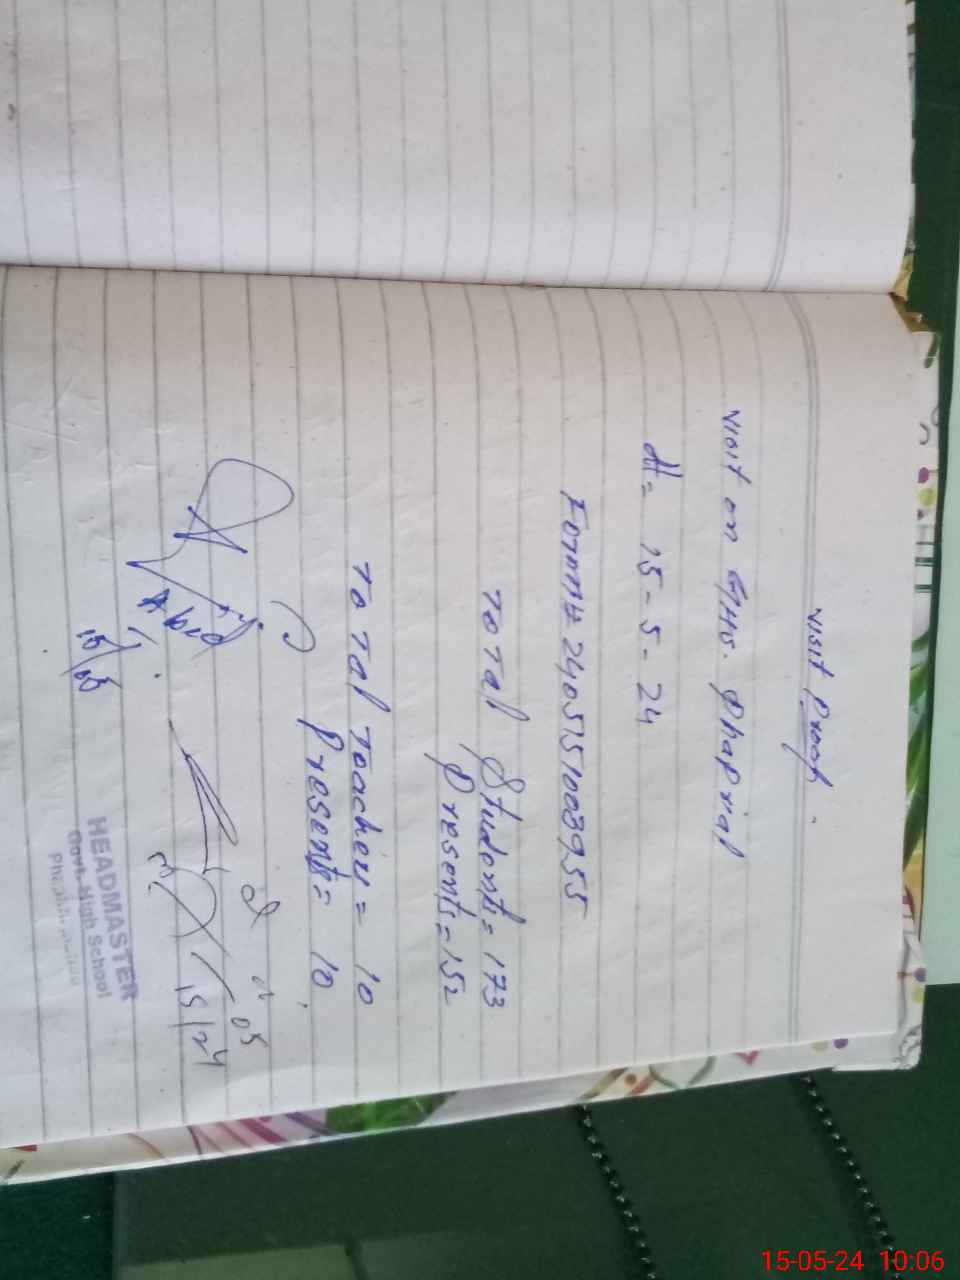 Visit Proof.
Visit on GHS. Phaphial
dt= 15-5-24
Total Student= 173
Present=152
Total Teacher= 10
Present= 10
Abid
15/05
05
15/24
HEADMASTER
Govt. High School
15-05-24 10:06